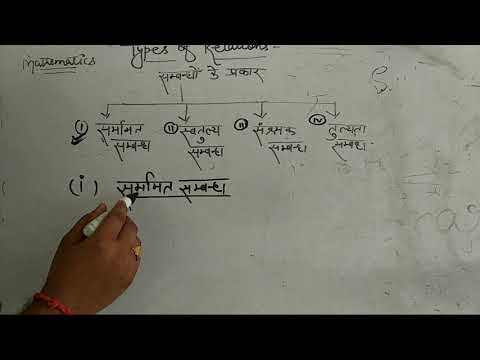 Types of Relations
Mathematics
सम्बन्धों के प्रकार
(i) सममित सम्बन्ध
(ii) स्वतुल्य सम्बन्ध
(ii) संक्रमक सम्बन्ध
(iv) तुल्यता सम्बन्ध
(i) सममित सम्बन्ध